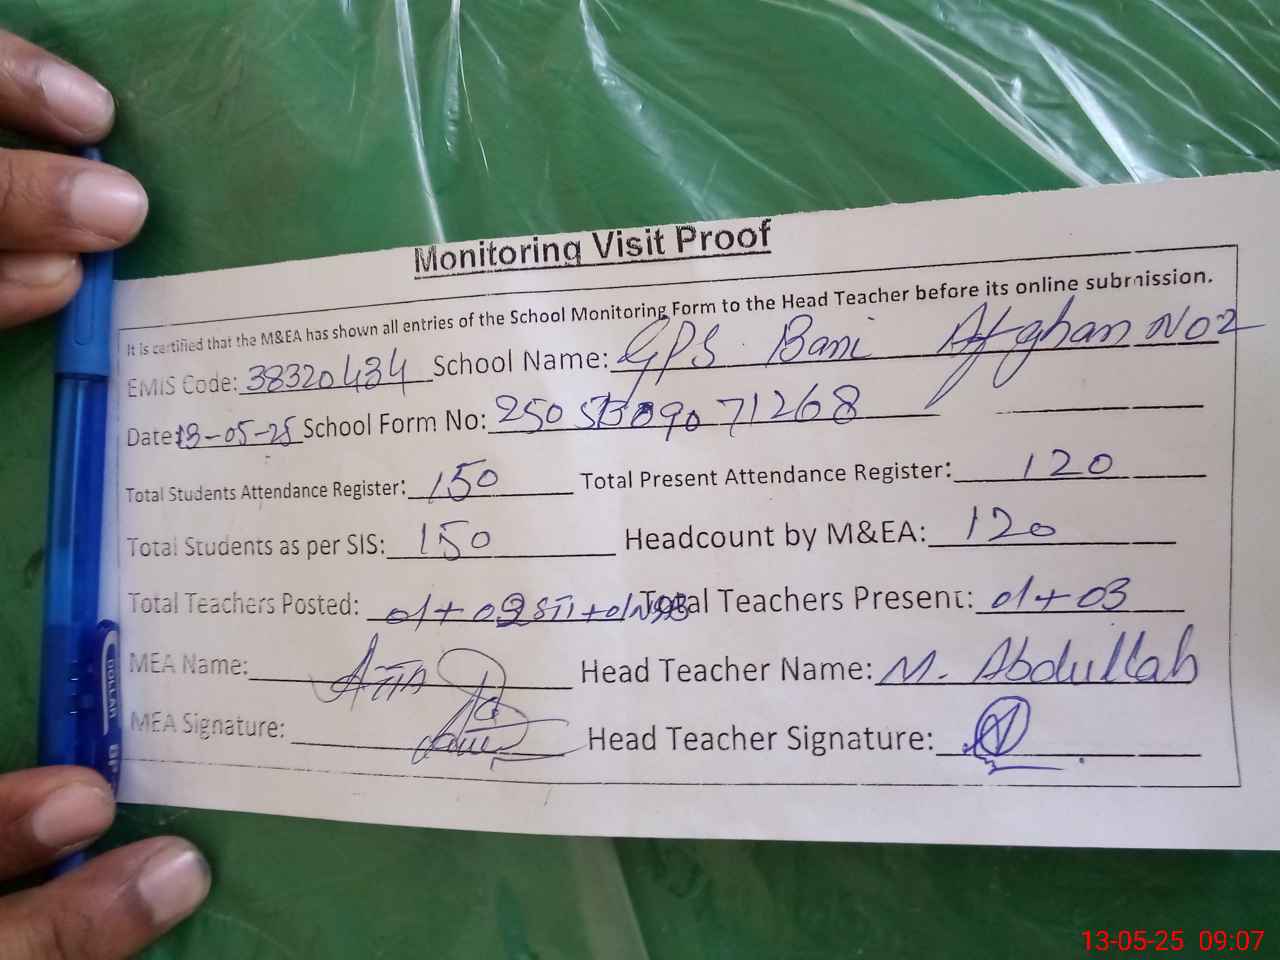 Monitoring Visit Proof
It is certified that the M&EA has shown all entries of the School Monitoring Form to the Head Teacher before its online submission.
EMIS Code: 38320434 School Name: GPS Bani Afghan No 2
Date: 13-05-25 School Form No: 25051309071268
Total Students Attendance Register: 150 Total Present Attendance Register: 120
Total Students as per SIS: 150 Headcount by M&EA: 120
Total Teachers Posted: 01+03 STI+01 Total Teachers Present: 01+03
MEA Name: Head Teacher Name: M. Abdullah
MEA Signature: Head Teacher Signature:
DOLLAR BP
13-05-25 09:07